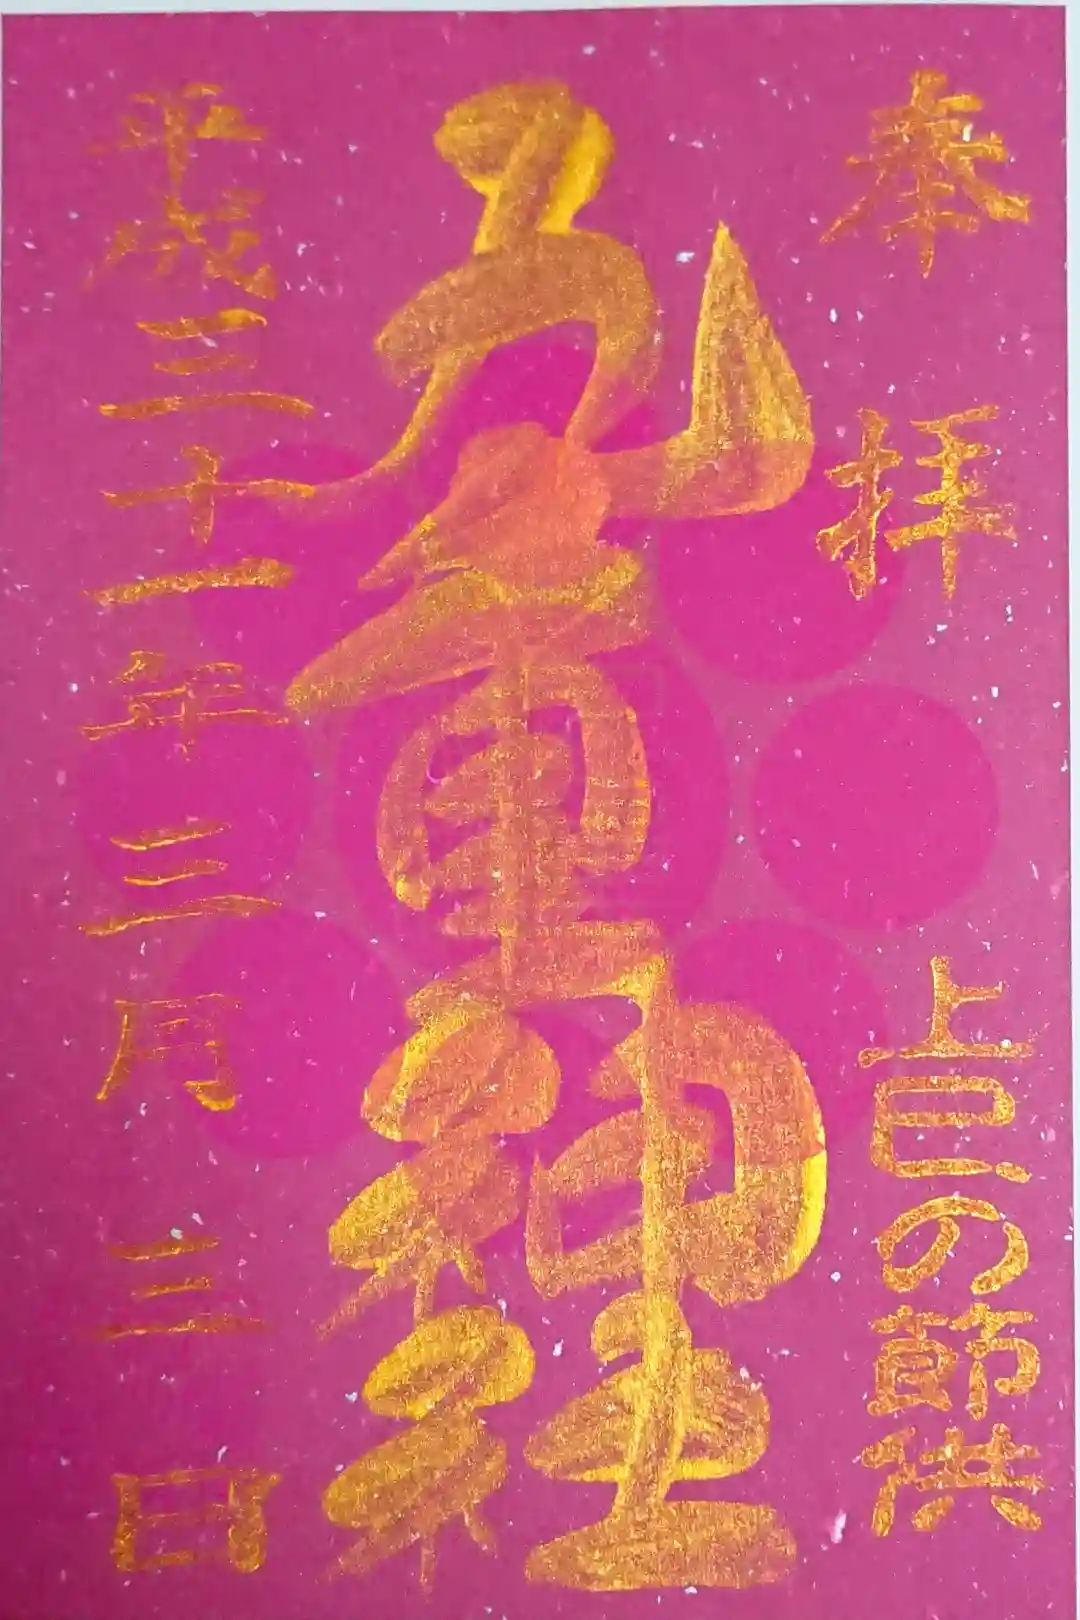 奉拝　上巳の節供
九重神社
平成三十一年三月三日